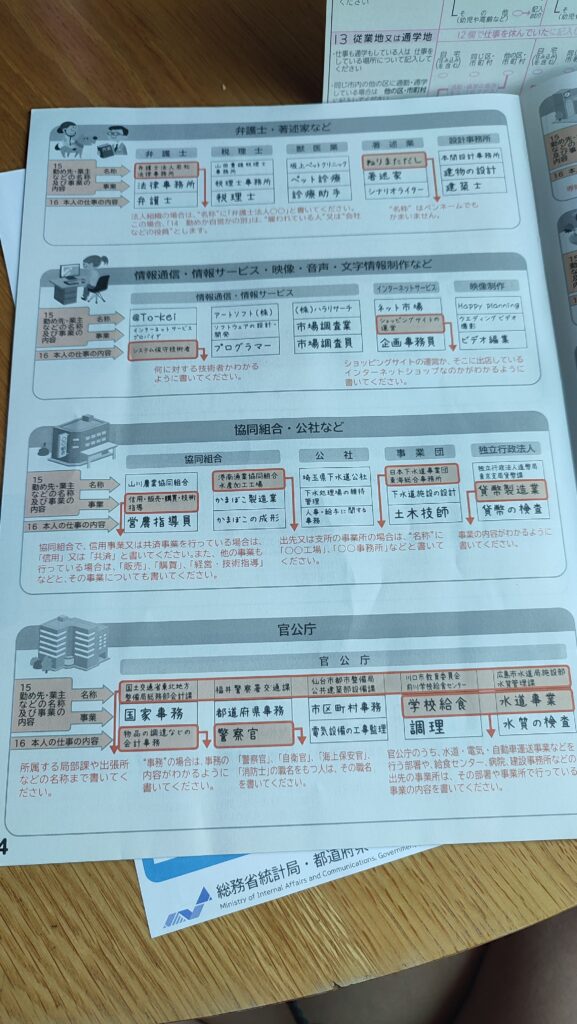 13 従業地又は通学地
弁護士・著述家など
弁護士
税理士
獣医業
著述業
設計事務所
15
勤め先・業主
などの名称
及び事業の
内容
名称
事業
16 本人の仕事の内容
法律事務所
弁護士
山田貴雄税理士
事務所
税理士事務所
税理士
坂上ペットクリニック
ペット診療
診療助手
ねりまただし
著述家
シナリオライター
本間設計事務所
建物の設計
建築士
法人組織の場合は、“名称”に「弁護士法人〇〇」と書いてください。
この場合、「14 勤めか自営かの別」は、“雇われている人”又は“会社
などの役員”とします。
“名称” はペンネームでも
かまいません。
情報通信・情報サービス・映像・音声・文字情報制作など
情報通信・情報サービス
インターネットサービス
映像制作
15
勤め先・業主
などの名称
及び事業の
内容
名称
事業
16 本人の仕事の内容
@To-kei
インターネットサービス
プロバイダ
システム保守技術者
アートソフト(株)
ソフトウェアの設計・
開発
プログラマー
(株)ハラリサーチ
市場調査業
市場調査員
ネット市場
ショッピングサイトの
運営
企画事務員
Happy planning
ウエディングビデオ
撮影
ビデオ編集
何に対する技術者かわかる
ように書いてください。
ショッピングサイトの運営か、そこに出店している
インターネットショップなのかがわかるように
書いてください。
協同組合・公社など
協同組合
公社
事業団
独立行政法人
15
勤め先・業主
などの名称
及び事業の
内容
名称
事業
16 本人の仕事の内容
山川農業協同組合
信用・販売・購買・技術
指導
営農指導員
港南漁業協同組合
水産加工工場
かまぼこ製造業
かまぼこの成形
埼玉県下水道公社
下水処理場の維持
管理
人事・給本に関する
事務
日本下水道事業団
東海総合事務所
下水道施設の設計
土木技師
独立行政法人造幣局
東京支局貨幣課
貨幣製造業
貨幣の検査
協同組合で、信用事業又は共済事業を行っている場合は、
「信用」又は「共済」と書いてください。また、他の事業も
行っている場合は、「販売」、「購買」、「経営・技術指導」
などと、その事業についても書いてください。
出先又は支所の事業所の場合は、“名称”に
「〇〇工場」、「〇〇事務所」などと書いて
ください。
事業の内容がわかるように
書いてください。
官公庁
官公庁
15
勤め先・業主
などの名称
及び事業の
内容
名称
事業
16 本人の仕事の内容
国土交通省東北地方
整備局総務部会計課
国家事務
物品の調達などの
会計事務
福井警察署交通課
都道府県事務
警察官
仙台市都市整備局
公共建築部設備課
市区町村事務
電気設備の工事監理
川口市教育委員会
前川学校給食センター
学校給食
調理
広島市水道局施設部
水質管理課
水道事業
水質の検査
所属する局部課や出張所
などの名称まで書いてく
ださい。
“事務”の場合は、事務の
内容がわかるように書い
てください。
「警察官」、「自衛官」、「海上保安官」、
「消防士」の職名をもつ人は、その職名
を書いてください。
官公庁のうち、水道・電気・自動車運送事業などを
行う部署や、給食センター、病院、建設事務所などの
出先の事業所は、その部署や事業所で行っている
事業の内容を書いてください。
4
総務省統計局・都道府県
Ministry of Internal Affairs and Communications, Government